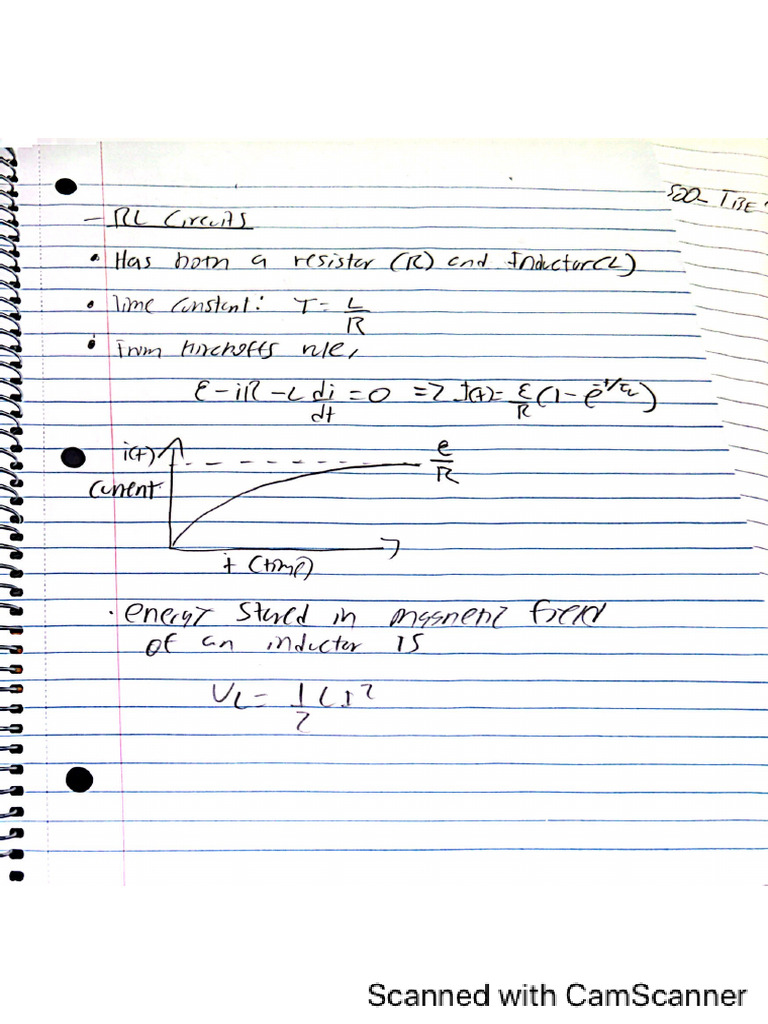 - RL Circuits
• Has both a resistor (R) and Inductor (L)
• Time Constant: T = L/R
• From Kirchoffs rule,
ε - iR - L di/dt = 0 => I(t) = ε/R (1 - e^-t/τL)
i(t)
e/R
Current
t (time)
• energy stored in magnetic field
of an inductor is
UL = 1/2 L I²
Scanned with CamScanner